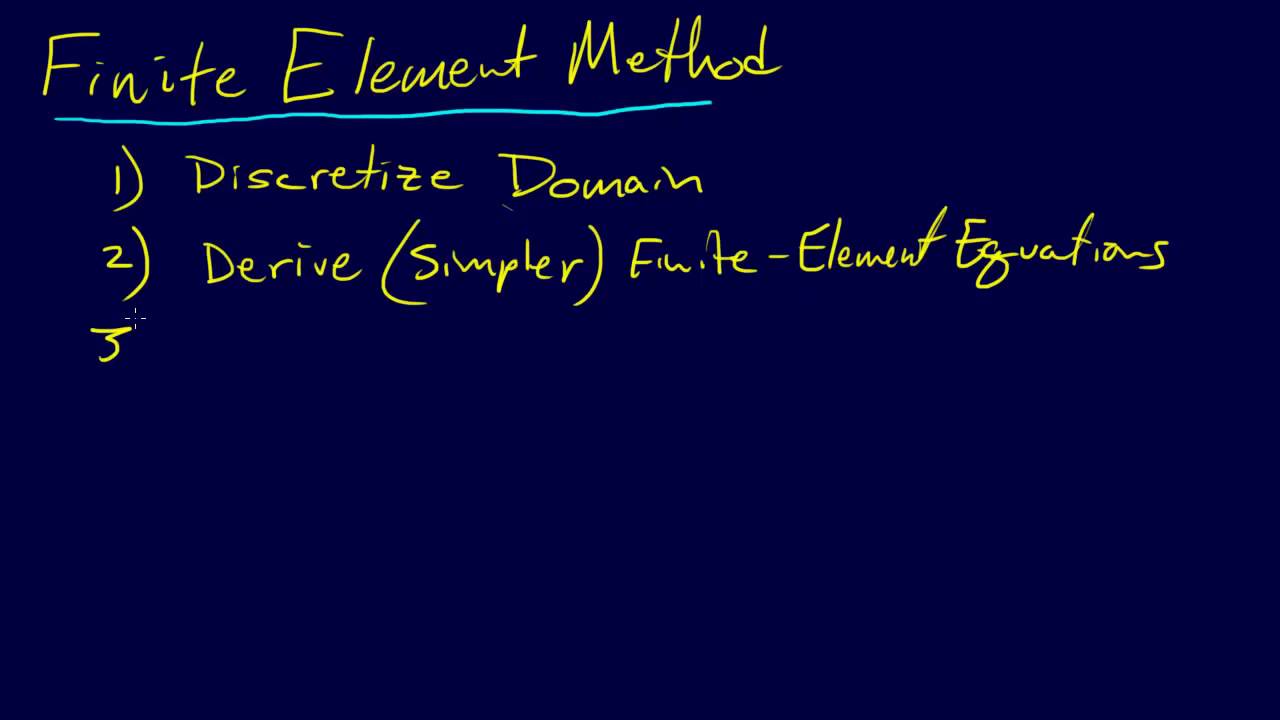 Finite Element Method
1) Discretize Domain
2) Derive (Simpler) Finite-Element Equations
3